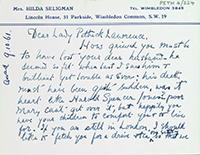 PETH 4/224
Mrs. HILDA SELIGMAN
TEL. WIMBLEDON
Lincoln House, 31 Parkside, Wimbledon Common, S.W. 19
Dear Lady Pethick Lawrence,
How grieved you must be
to have lost your dear husband. he
seemed so fit when last I saw him &
brilliant yet lovable as ever: his death
must have been quite sudden was it
heart like Harold Spencer Jones, poor
Mary can't get over it, but happily you
have your children to comfort you & live
for. If you are still in London, I should
like to fetch you for a drive